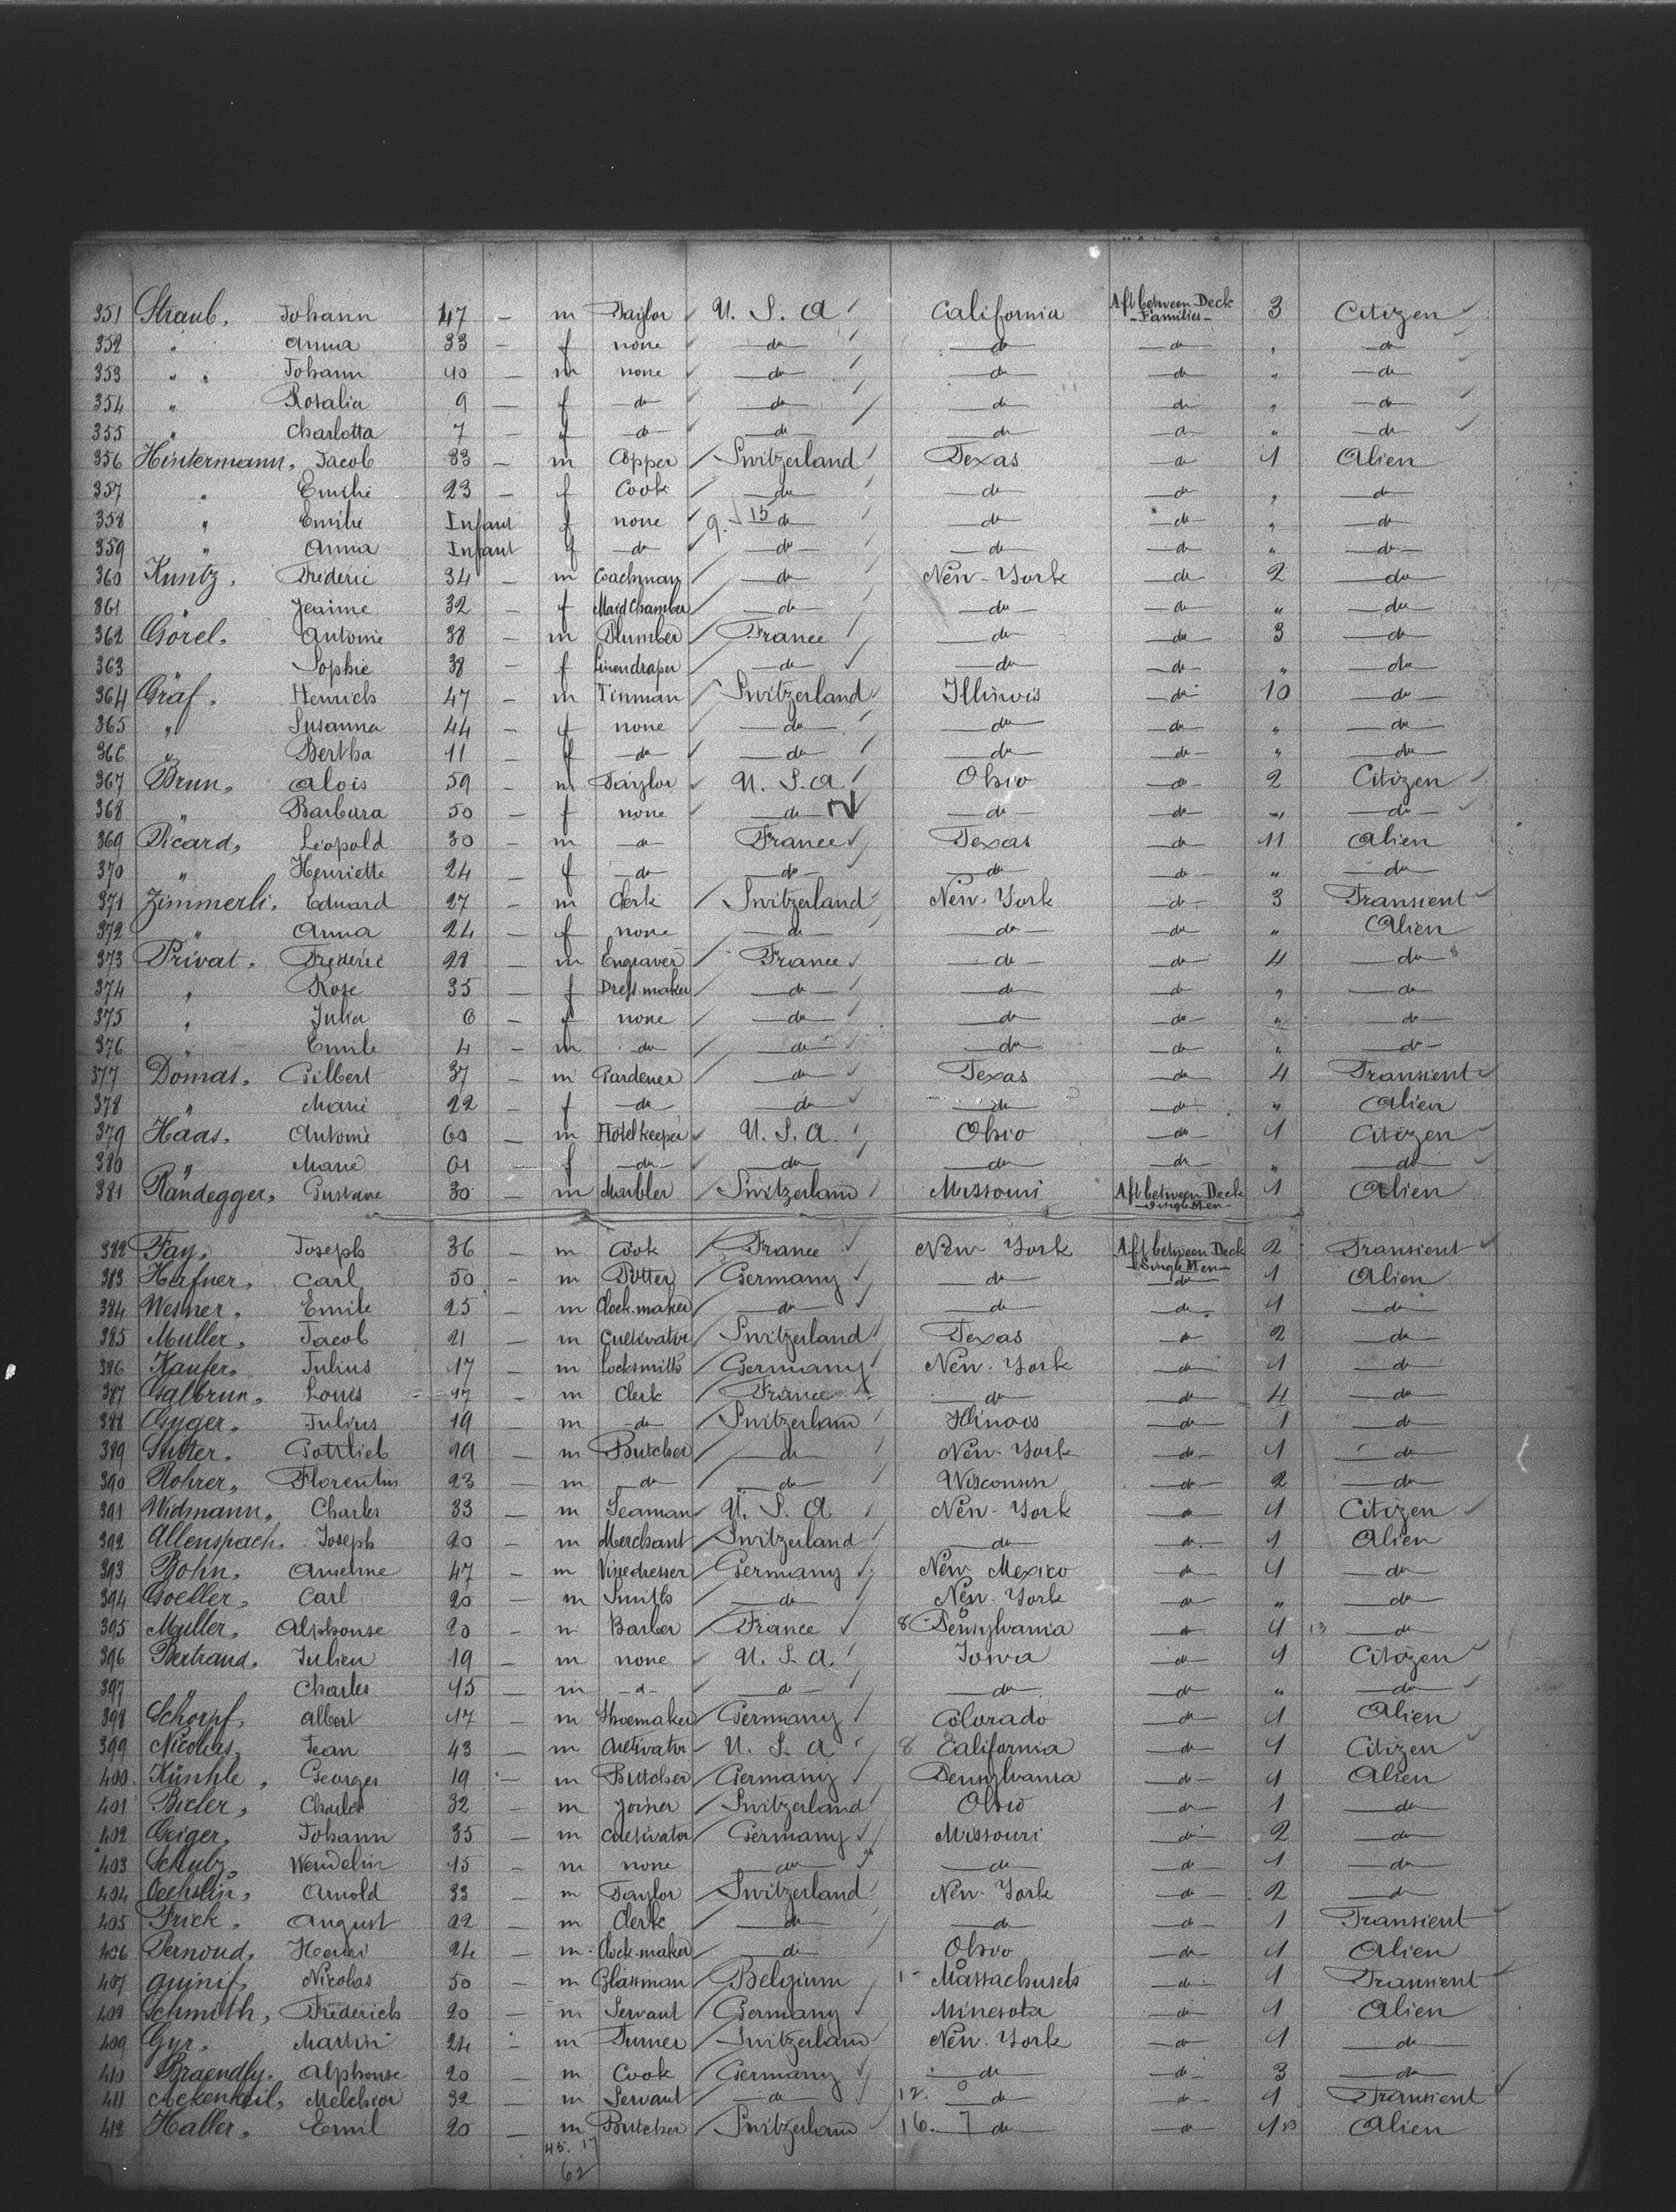 351 Straub, Johann 47 — m Taylor U. S. A California Aft between Deck -Families- 3 Citizen
352 " Anna 33 — f none do do do " do
353 " " Johann 10 — m none do do do " do
354 " Rosalia 9 — f do do do do " do
355 " Charlotta 7 — f do do do do " do
356 Hintermann, Jacob 33 — m Copper Switzerland Texas do 1 Alien
357 " Emilie 23 — f Cook do do do " do
358 " Emilie Infant f none 9. 15 do do do " do
359 " Anna Infant f do do do do " do
360 Kuntz, Frédéric 34 — m Coachman do New-York do 2 do
361 Jeanne 32 — f Maid Chamber do do do " do
362 Görel, Antoine 38 — m Plumber France do do 3 do
363 Sophie 38 — f Linendraper do do do " do
364 Gräf, Henrich 47 — m Tinman Switzerland Illinois do 10 do
365 " Susanna 44 — f none do do do " do
366 " Bertha 11 — f do do do do " do
367 Brun, Alois 59 — m Taylor U. S. A. Ohio do 2 Citizen
368 " Barbara 50 — f none do do do " do
369 Picard, Léopold 30 — m do France Texas do 11 Alien
370 " Henriette 24 — f do do do do " do
371 Zimmerli, Eduard 27 — m Clerk Switzerland New-York do 3 Transient
372 " Anna 24 — f none do do do " Alien
373 Privat, Frédéric 28 — m Engraver France do do 4 do
374 " Rose 35 — f Dress maker do do do " do
375 " Julia 6 — f none do do do " do
376 " Emile 4 — m do do do do " do
377 Domas, Gilbert 37 — m Gardener do Texas do 4 Transient
378 " Marie 22 — f do do do do " Alien
379 Haas, Antoine 60 — m Hotel keeper U. S. A. Ohio do 1 Citizen
380 " Marie 61 — f do do do do " do
381 Randegger, Gustave 30 — m Marbler Switzerland Missouri Aft between Deck -Single Men- 1 Alien
382 Fay, Joseph 36 — m Cook France New York Aft between Deck -Single Men- 2 Transient
383 Hafner, Carl 50 — m Potter Germany do do 1 Alien
384 Wesner, Emile 25 — m Clock-maker do do do 1 do
385 Muller, Jacob 21 — m Cultivator Switzerland Texas do 2 do
386 Kaufer, Julius 17 — m Locksmith Germany New-York do 1 do
387 Galbrun, Louis 17 — m Clerk France do do 4 do
388 Gyger, Julius 19 — m do Switzerland Illinois do 1 do
389 Sutter, Gottlieb 19 — m Butcher do New-York do 1 do
390 Rohrer, Florentin 23 — m do do Wisconsin do 2 do
391 Widmann, Charles 33 — m Seaman U. S. A New-York do 1 Citizen
392 Allenspach, Joseph 20 — m Merchant Switzerland do do 1 Alien
393 Bohn, Anselme 47 — m Vinedresser Germany New Mexico do 1 do
394 Goeller, Carl 20 — m Smith do New-York do " do
395 Muller, Alphonse 20 — m Barber France 8 Pensylvania do 4 13 do
396 Bertrand, Julien 19 — m none U. S. A. Iowa do 1 Citizen
397 " Charles 15 — m do do do do " do
398 Schorpf, Albert 17 — m Shoemaker Germany Colorado do 1 Alien
399 Nicolas, Jean 43 — m Cultivator U. S. A 8 California do 1 Citizen
400 Künhle, Georges 19 — m Butcher Germany Pensylvania do 1 Alien
401 Bieler, Charles 32 — m Joiner Switzerland Ohio do 1 do
402 Geiger, Johann 35 — m Cultivator Germany Missouri do 2 do
403 Schulz, Wendelin 15 — m none do do do 1 do
404 Oechslin, Arnold 33 — m Taylor Switzerland New-York do 2 do
405 Frick, August 22 — m Clerk do do do 1 Transient
406 Pernoud, Henri 24 — m Clock-maker do Ohio do 1 Alien
407 Quinif, Nicolas 50 — m Glassman Belgium 1- Massachusets do 1 Transient
408 Schmith, Frédérich 20 — m Servant Germany Minesota do 1 Alien
409 Gyr, Martin 24 — m Turner Switzerland New-York do 1 do
410 Braendly, Alphonse 20 — m Cook Germany do do 3 do
411 Ackenheil, Melchior 32 — m Servant do 12. do do 1 Transient
412 Haller, Emil 20 — m Butcher Switzerland 16. 7 do do 1 Alien
45. 17
62